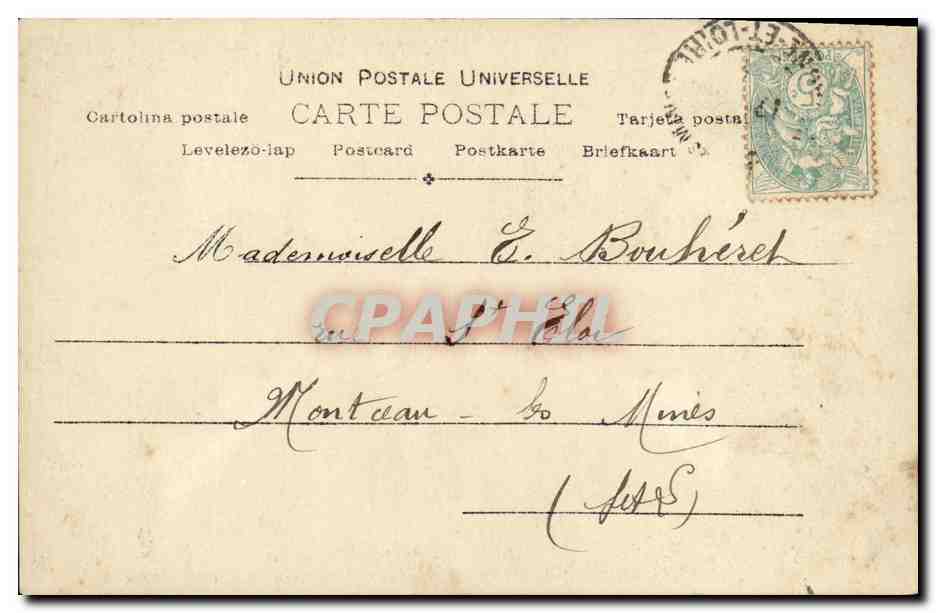 UNION POSTALE UNIVERSELLE
CARTE POSTALE
Cartolina postale Tarjeta postal
Levelezö-lap Postcard Postkarte Briefkaart
Mademoiselle E. Bouhéret
rue St Eloi
CPAPHIL
Montceau - les Mines
(S et L)
-ET-LOIRE
5